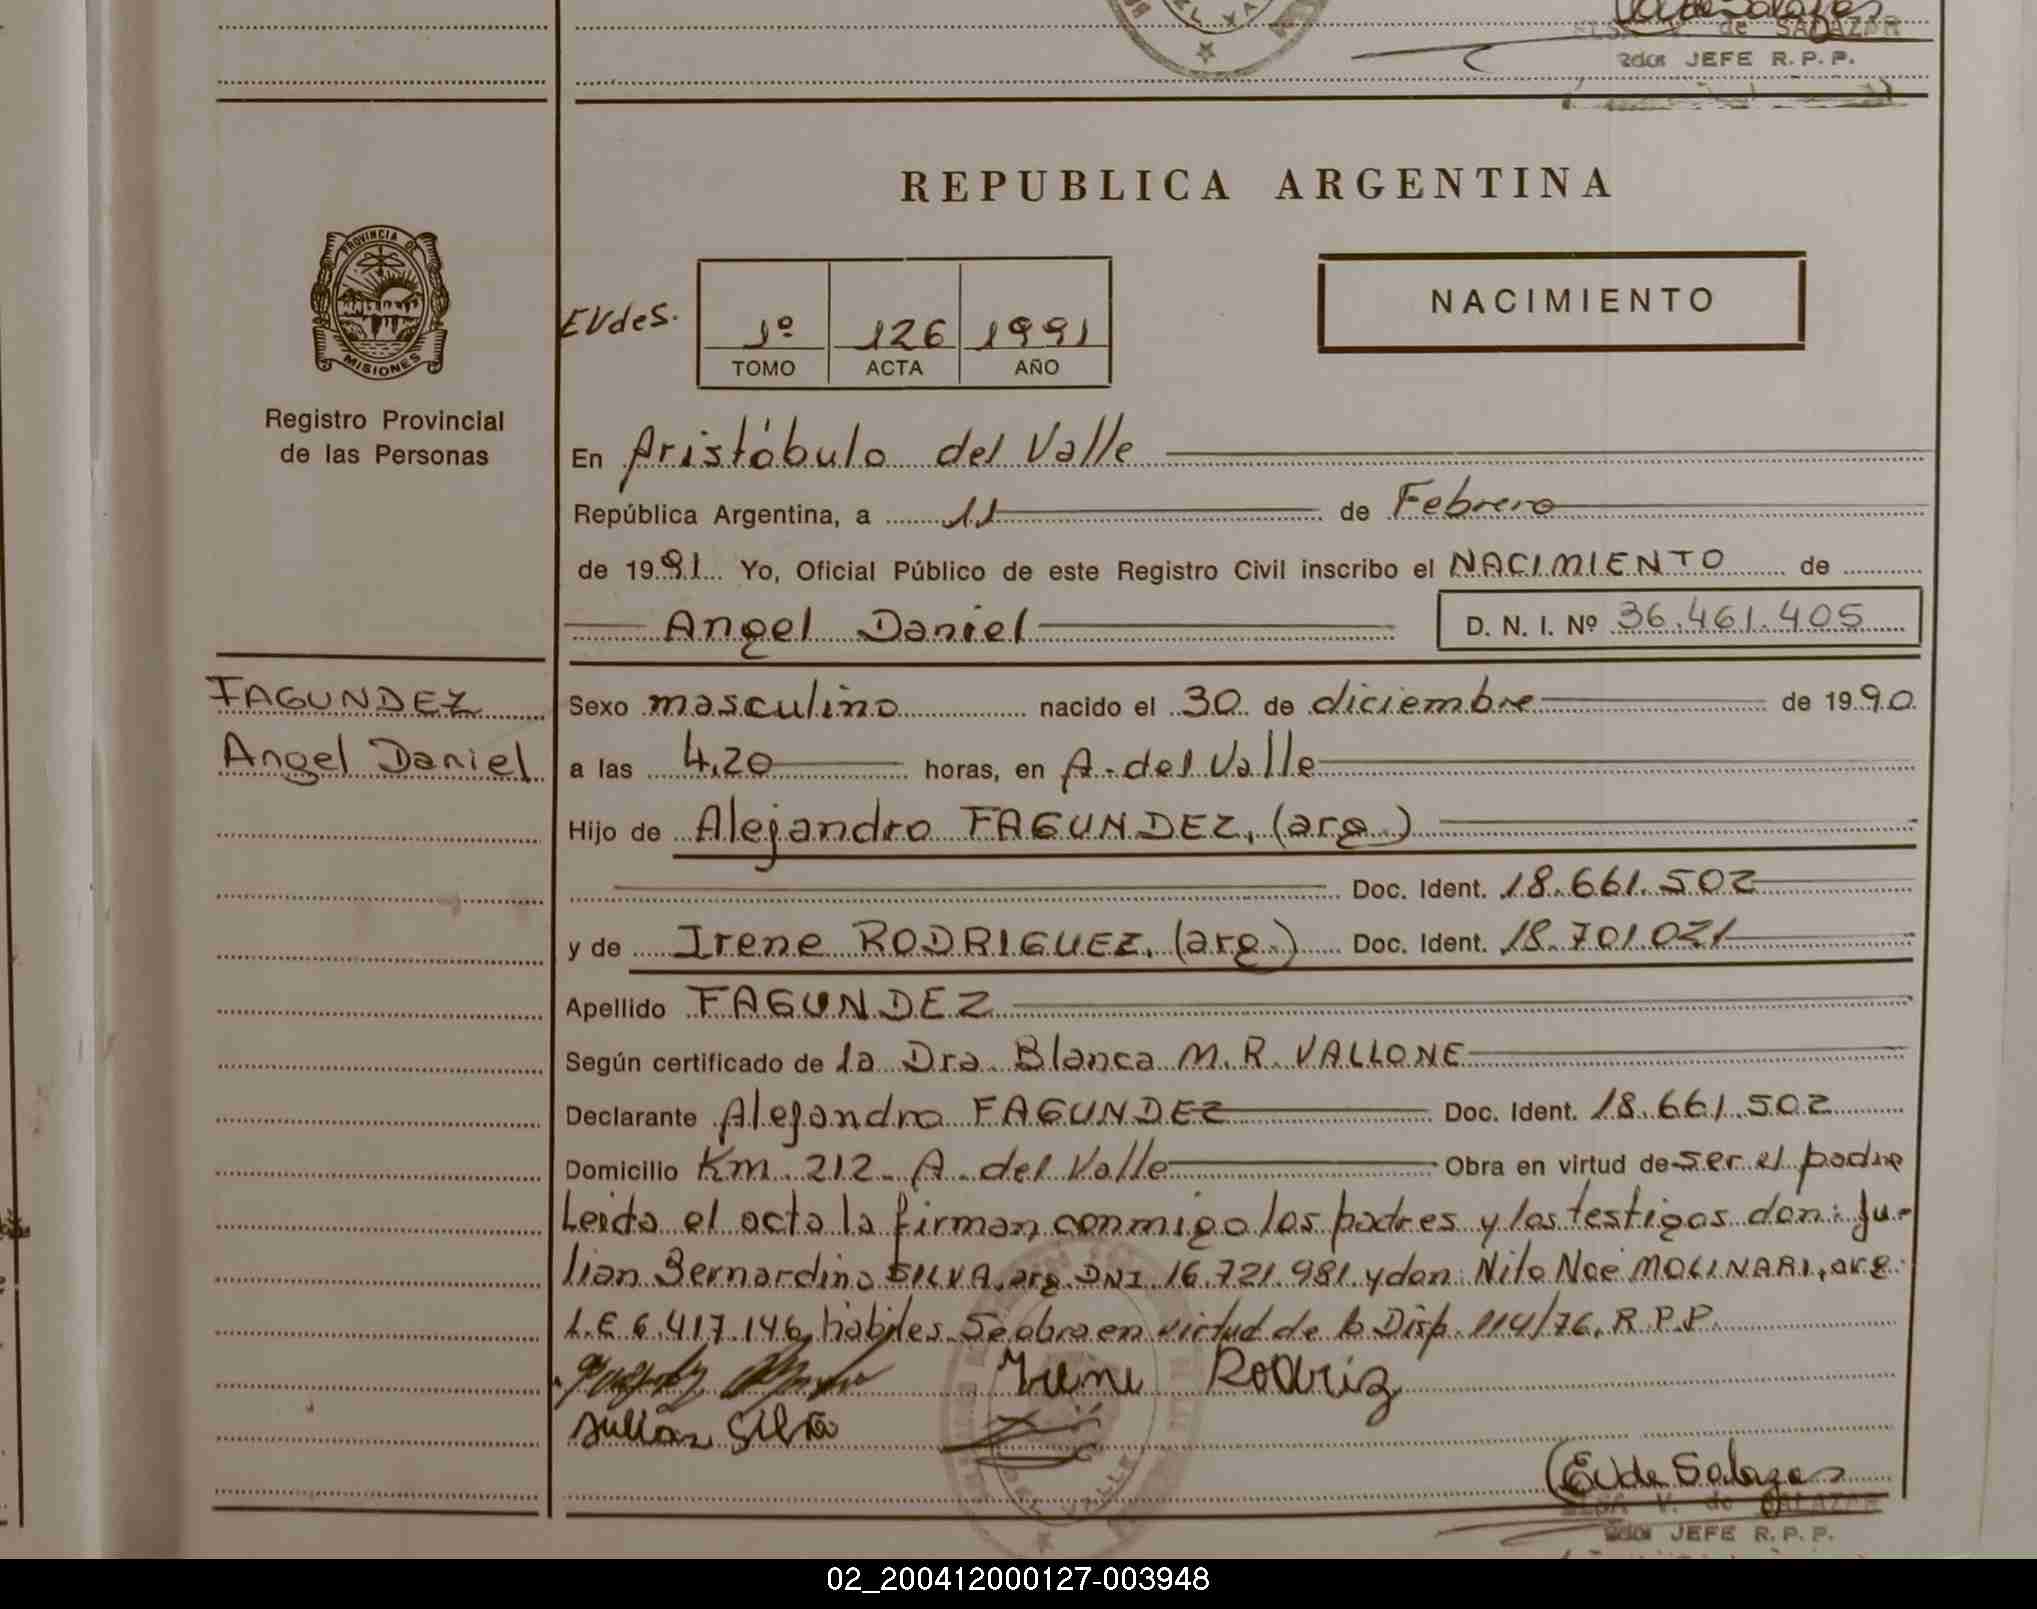 de Salazar
ELSA V. de SALAZAR
JEFE R.P.P.
REPUBLICA ARGENTINA
PROVINCIA DE
MISIONES
Registro Provincial
de las Personas
EVdeS.
1º 126 1991
TOMO ACTA AÑO
NACIMIENTO
En Aristóbulo del Valle
República Argentina, a 11 de Febrero
de 1991 Yo, Oficial Público de este Registro Civil inscribo el NACIMIENTO de
Angel Daniel D. N. I. Nº 36.461.405
FAGUNDEZ
Angel Daniel
Sexo masculino nacido el 30 de diciembre de 1990
a las 4,20 horas, en A. del Valle
Hijo de Alejandro FAGUNDEZ, (arg.)
Doc. Ident. 18.661.502
y de Irene RODRIGUEZ, (arg.) Doc. Ident. 18.701.021
Apellido FAGUNDEZ
Según certificado de la Dra. Blanca M. R. VALLONE
Declarante Alejandro FAGUNDEZ Doc. Ident. 18.661.502
Domicilio Km. 212- A. del Valle Obra en virtud de ser el padre
Leida el acta la firman conmigo los padres y los testigos don: Ju-
lian Bernardino SILVA, arg. DNI 16.721.981 y don: Nilo Noé MOLINARI, arg.
L.E 6.417.146, hábiles. Se obra en virtud de la Disp. 114/76, R.P.P.
Irene Rodriz
Julian Silva
DEL VALLE
EVde Salazar
ELSA V. de SALAZAR
JEFE R.P.P.
02_200412000127-003948